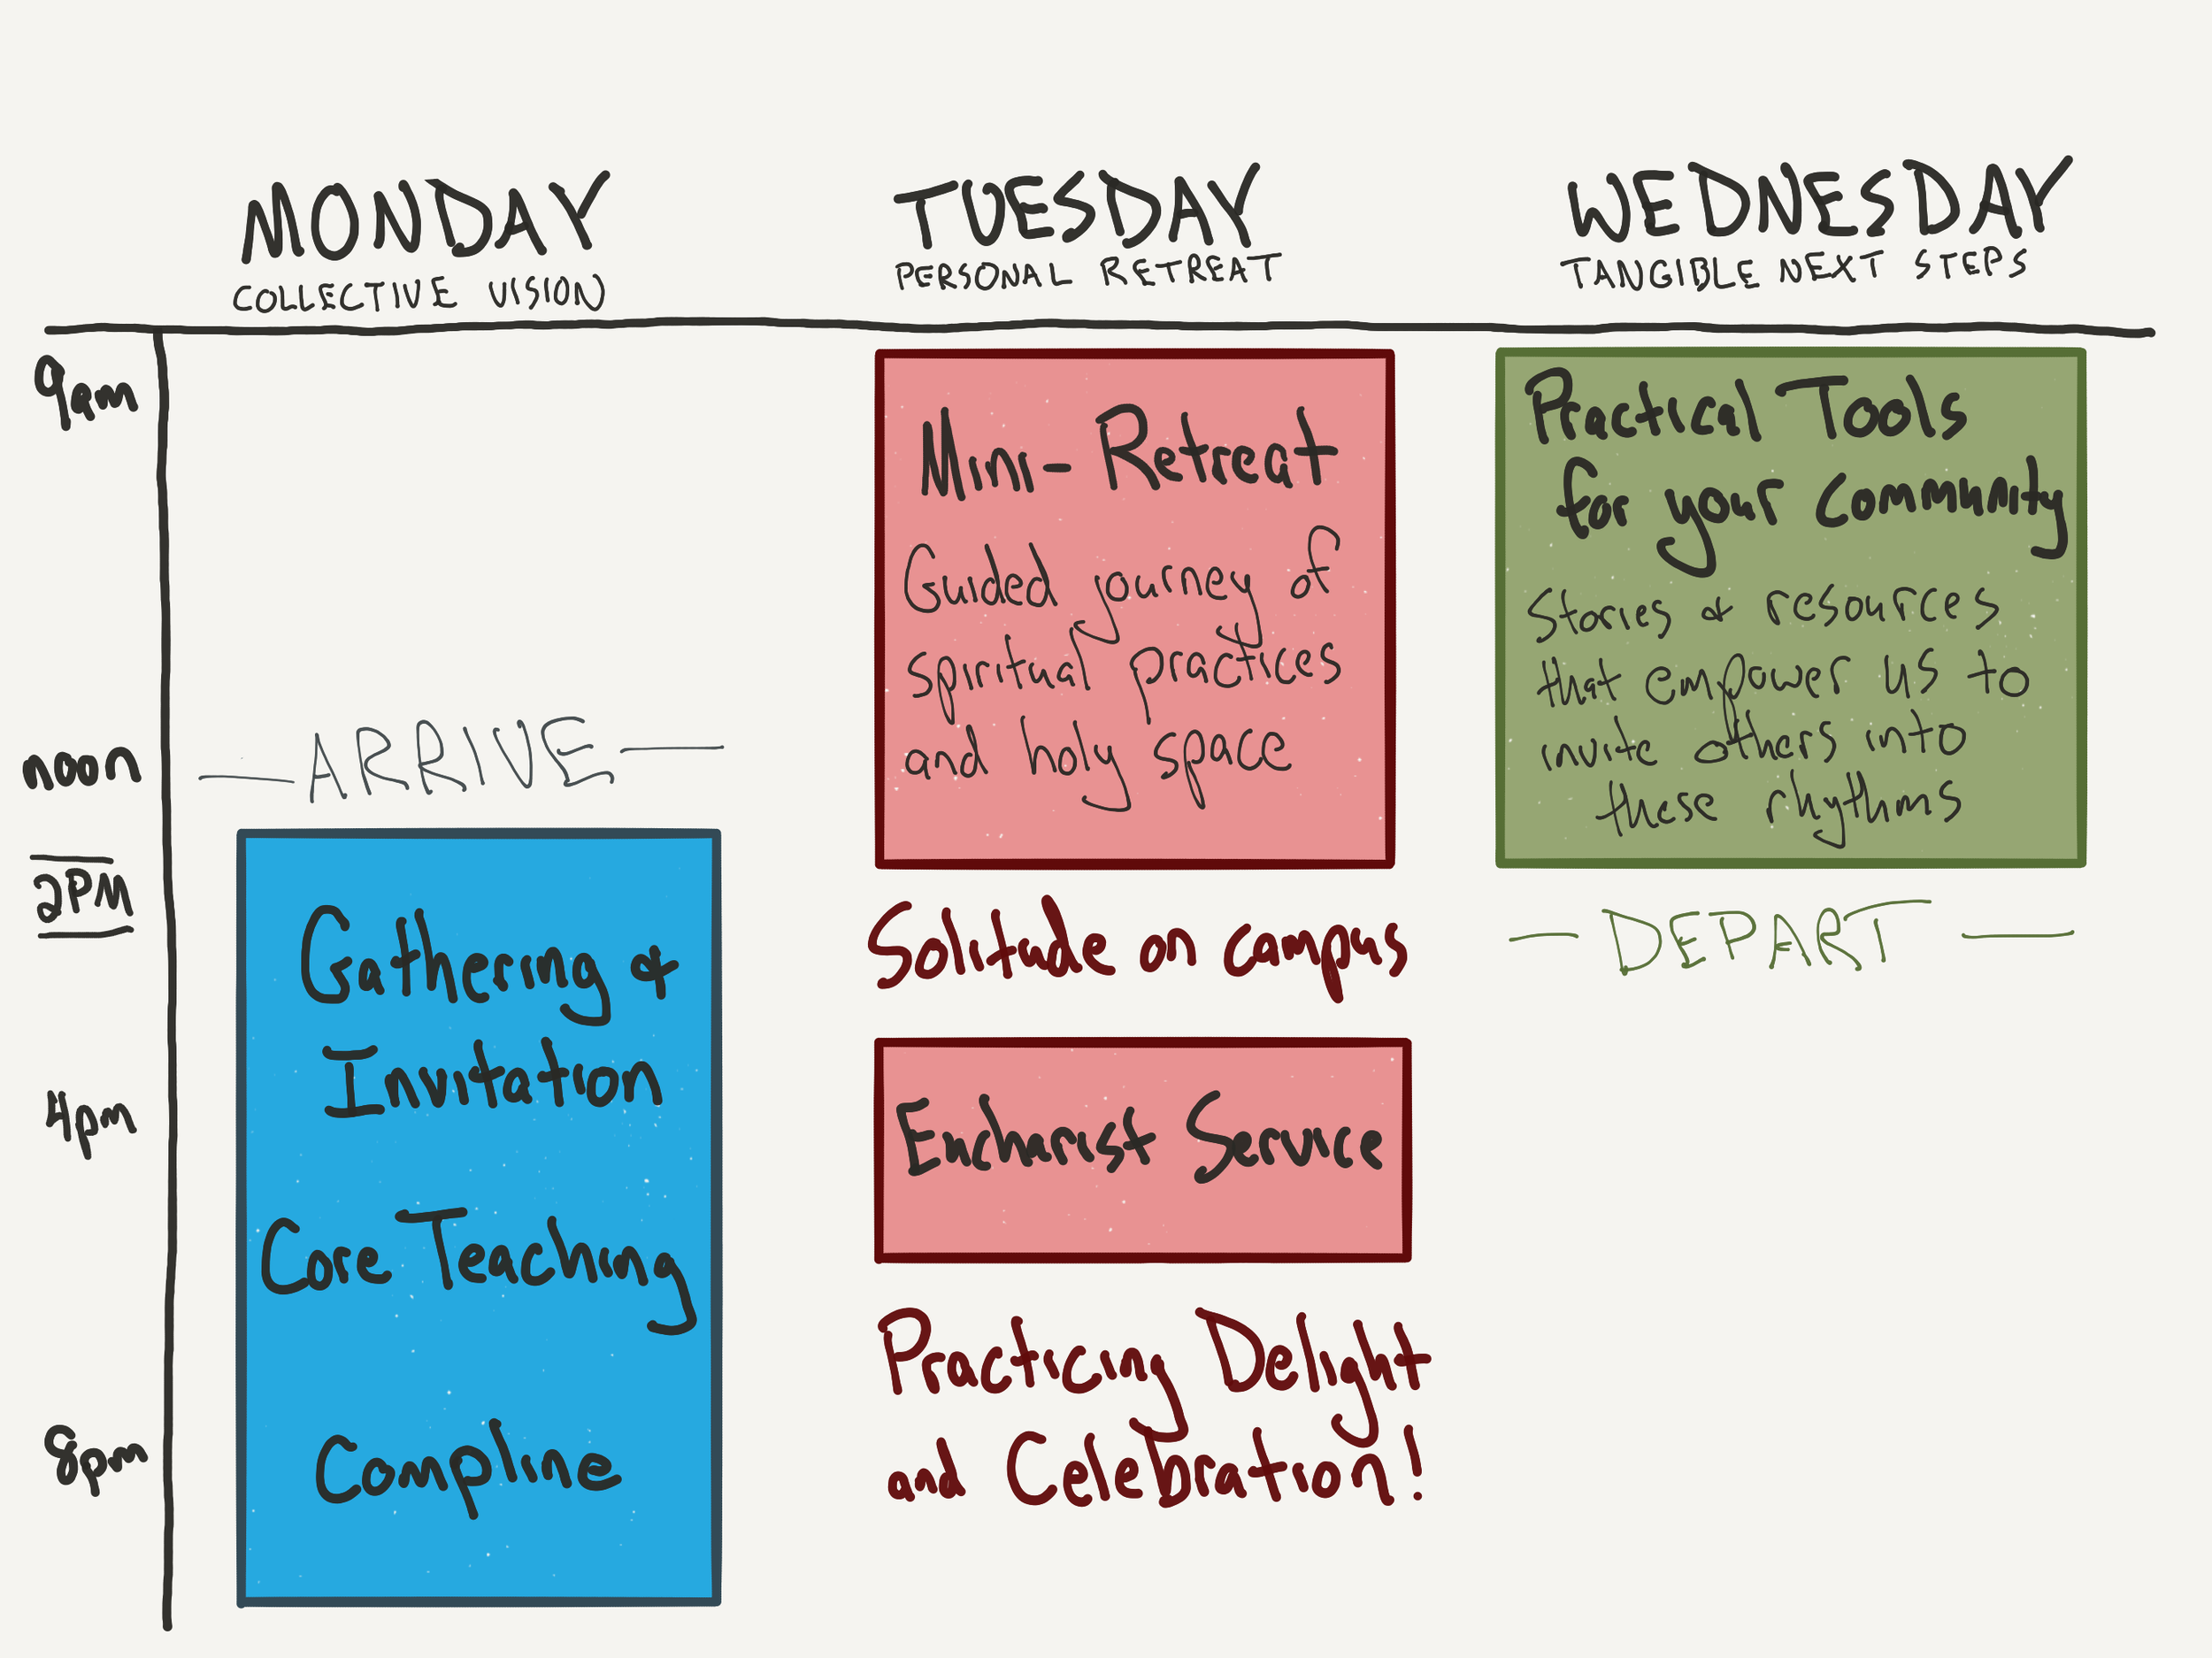 MONDAY
COLLECTIVE VISION
TUESDAY
PERSONAL RETREAT
WEDNESDAY
TANGIBLE NEXT STEPS
9am
noon
2PM
4pm
8pm
ARRIVE
Gathering &
Invitation
Core Teaching
Compline
Mini-Retreat
Guided journey of
spiritual practices
and holy space
Solitude on campus
Eucharist Service
Practicing Delight
and Celebration!
Practical Tools
for your Community
Stories & resources
that empower us to
invite others into
these rhythms
DEPART